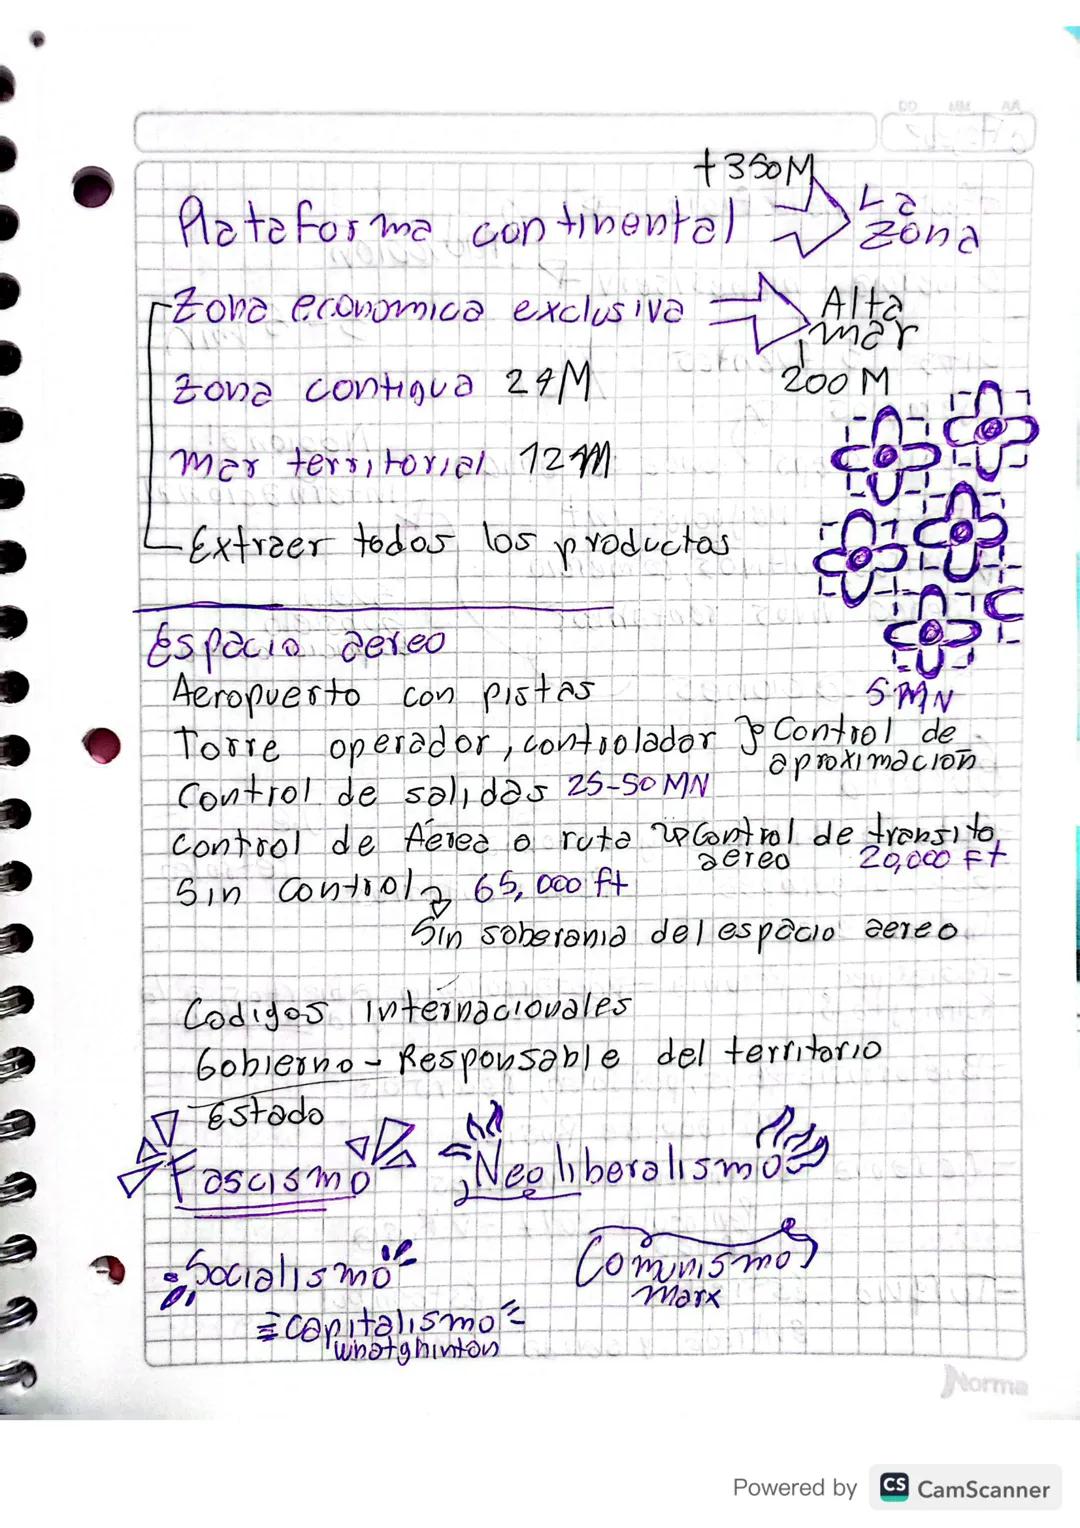 DD MM AA
+350M
Plataforma continental La
Zona
Zona economica exclusiva Alta
mar
Zona contigua 24M 200 M
Mar territorial 12M
Extraer todos los productos
Espacio aereo
5 MN
Aeropuerto con pistas
Torre operador, controlador Control de
aproximación
Control de salidas 25-50 MN
Control de Aerea o ruta Control de transito
aereo 20,000 Ft
Sin control 65,000 ft
Sin soberania del espacio aereo
Codigos Internacionales
Gobierno - Responsable del territorio
Estado
Fascismo Neoliberalismo
Socialismo Comunismo
Marx
Capitalismo
whatghinton
Norma
Powered by CS CamScanner